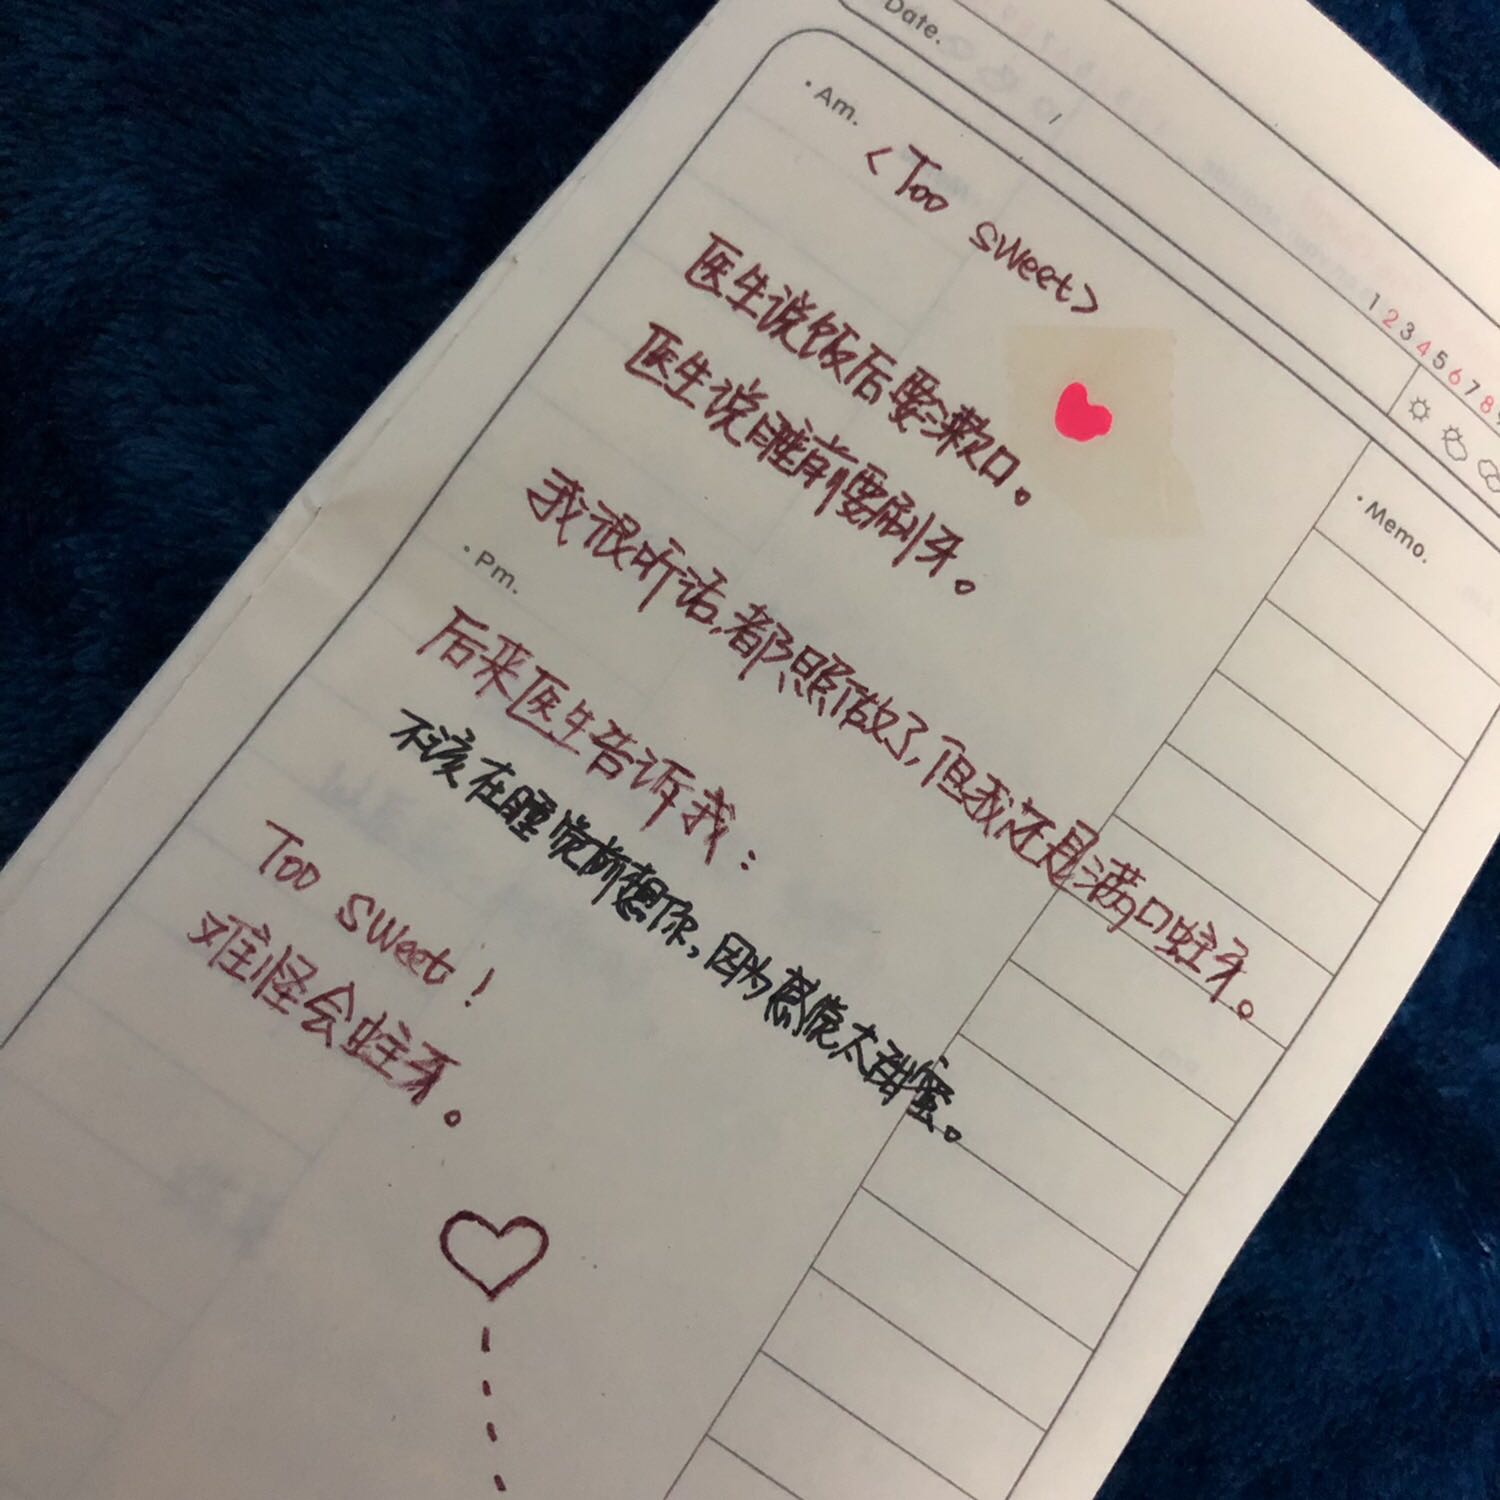 Date.
1 2 3 4 5 6 7 8
· Am.
<Too sweet>
医生说饭后要漱口。
医生说睡前要刷牙。
我很听话,都照做了,但我还是满口蛀牙。
· Pm.
后来医生告诉我:
不该在睡觉前想你,因为感觉太甜蜜。
Too sweet!
难怪会蛀牙。
· Memo.